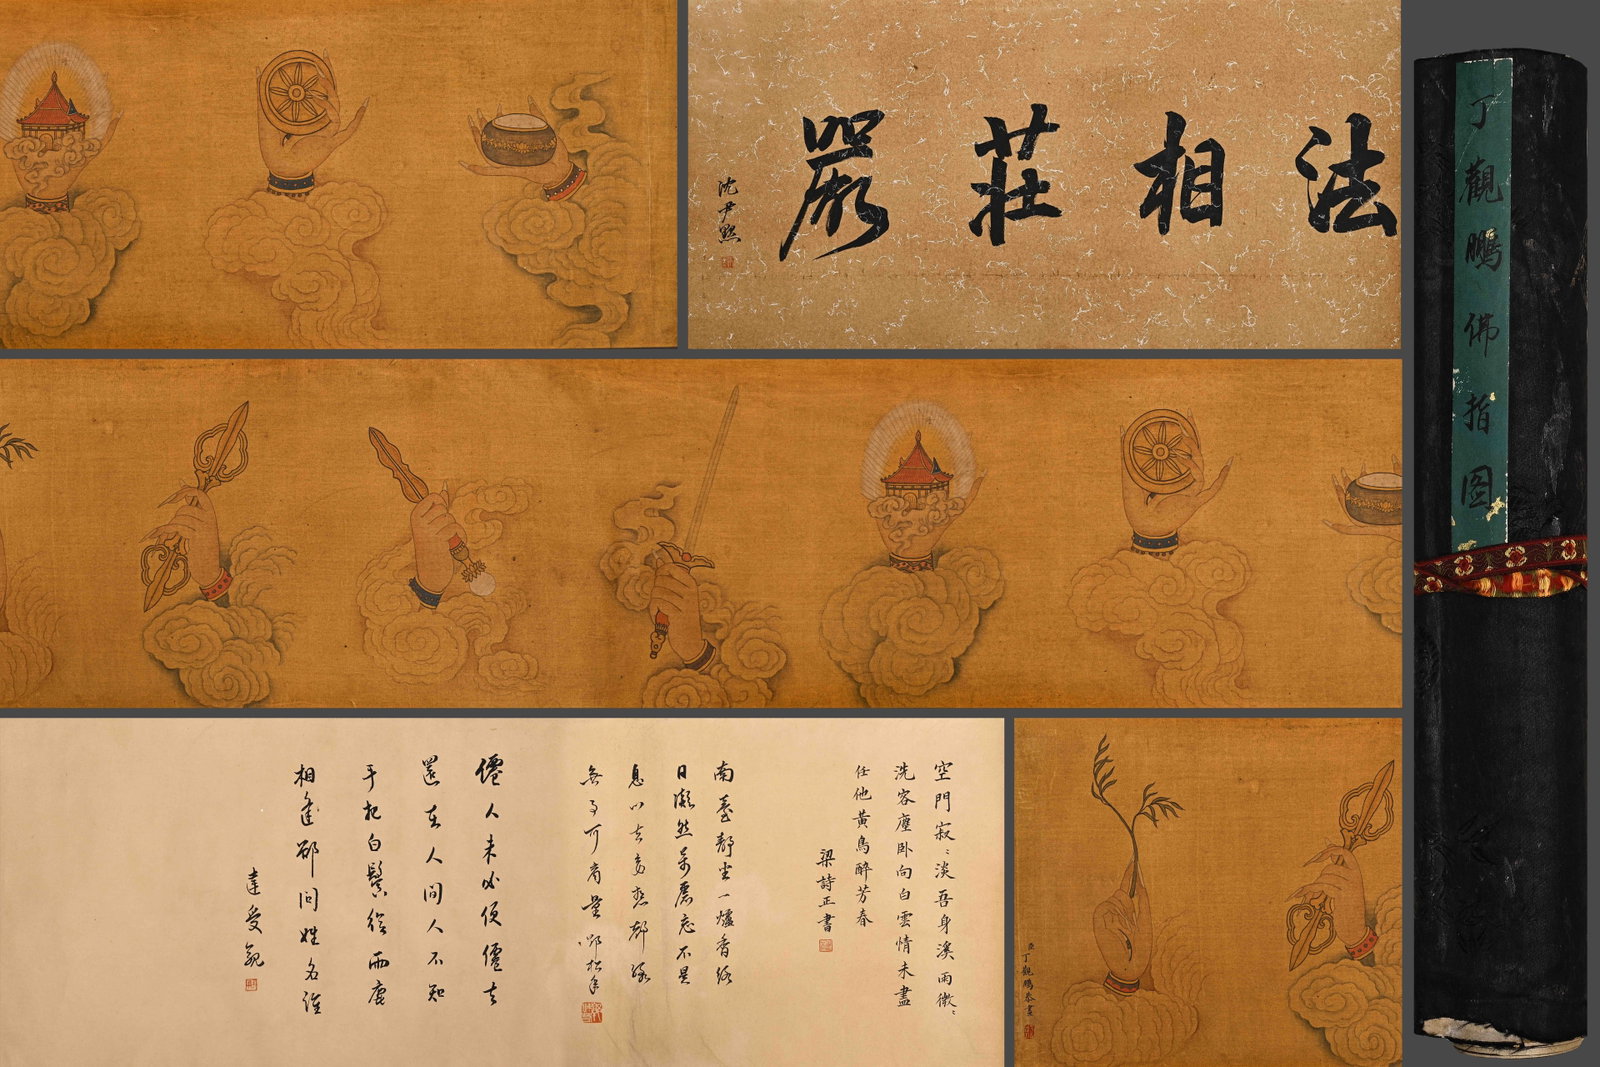 法相莊嚴
沈尹默
丁觀鵬佛指図
空門寂〻淡吾身溪雨微〻
洗客塵卧向白雲情未盡
任他黃鳥醉芳春
梁詩正書
南臺靜坐一爐香終
日凝然萬慮忘不是
息心去妄想都緣
無事可商量
鄧松年
僊人未必便僊去
還在人間人不知
手把白鬚從兩鹿
相逢卻問姓名誰
達受觀
臣丁觀鵬恭畫